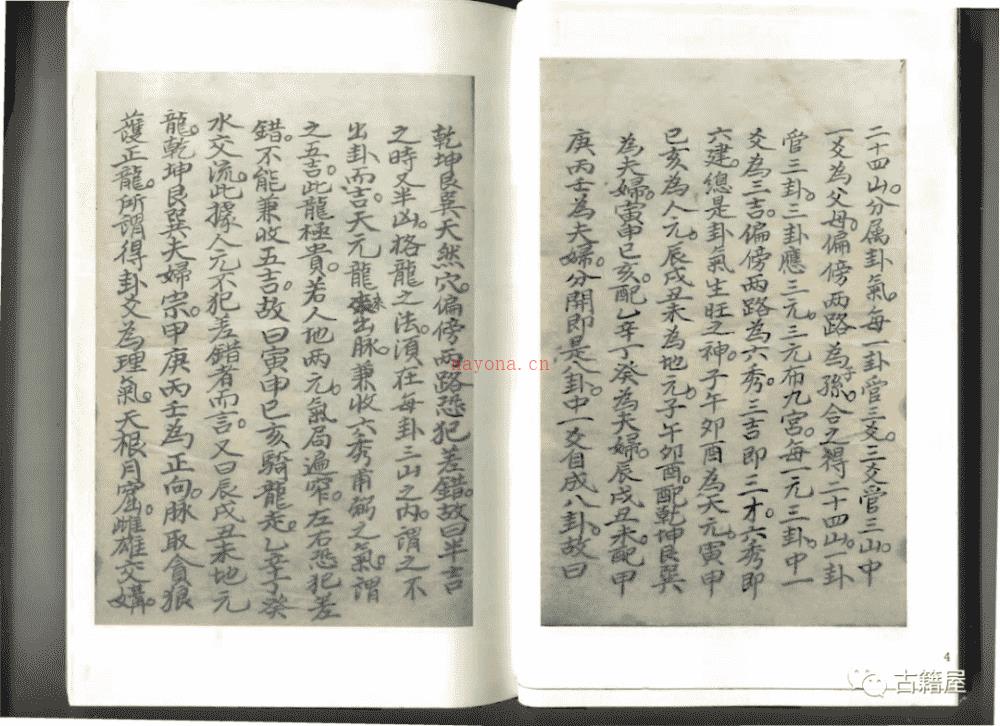 二十四山。分属卦氣。每一卦管三爻。三爻管三山。中
一爻為父母。偏傍兩路為子孫。合之得二十四山。一卦
管三卦。三卦應三元。三元布九宮。每一元三卦。中一
爻為三吉。偏傍兩路為六秀。三吉即三才。六秀即
六建。總是卦氣生旺之神。子午卯酉為天元。寅申
巳亥為人元。辰戌丑未為地元。子午卯酉。配乾坤艮巽
為夫婦。寅申巳亥。配乙辛丁癸為夫婦。辰戌丑未。配甲
庚丙壬為夫婦。分開即是八卦。中一爻自成八卦。故曰
乾坤艮巽天然穴。偏傍兩路。恐犯差錯。故曰半吉
之時又半凶。格龍之法。須在每卦三山之內。謂之不
出卦而吉。天元龍來出脉。兼收六秀甫弼之氣。謂
之五吉。此龍極貴。若人地兩元。氣局遍窄。左右恐犯差
錯。不能兼收五吉。故曰寅申巳亥騎龍走。乙辛丁癸
水交流。此據人元不犯差錯者而言。又曰辰戌丑未地元
龍。乾坤艮巽夫婦宗。甲庚丙壬為正向。脉取貪狼
護正龍。所謂得卦爻為理氣。天根月窟。雌雄交媾。
4
nayona.cn
古籍屋